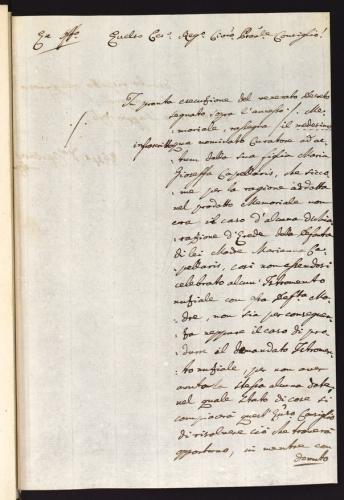 Ex Off.º Excelso Ces.º Reg.º Civ.º Prov.le Consiglio!
In pronta esecuzione del venerato Decreto
segnato sopra l'annesso ./. Me-
moriale, rassegna il medesimo
infrascritto nominato Curatore ad ac-
tum della sua figlia Maria
Gioseffa Capellaris, che sicco-
me per la ragione addotta
nel prodotto Memoriale non
era il caso d'alcuna dichia-
razione d'Erede della Defunta
di lei Madre Marianna Ca-
pellaris, così non essendosi
celebrato alcun Istromento
nuziale con detta Defta Ma-
dre, non sia per conseguen-
za neppure il caso di pro-
durre il domandato Istrom-
ento nuziale, per non aver
avuto la stessa alcuna dote,
nel quale stato di cose si
compiacerà quest'Excelso Consiglio
di risolvere ciò che troverà
opportuno, in mentre con
dovuto